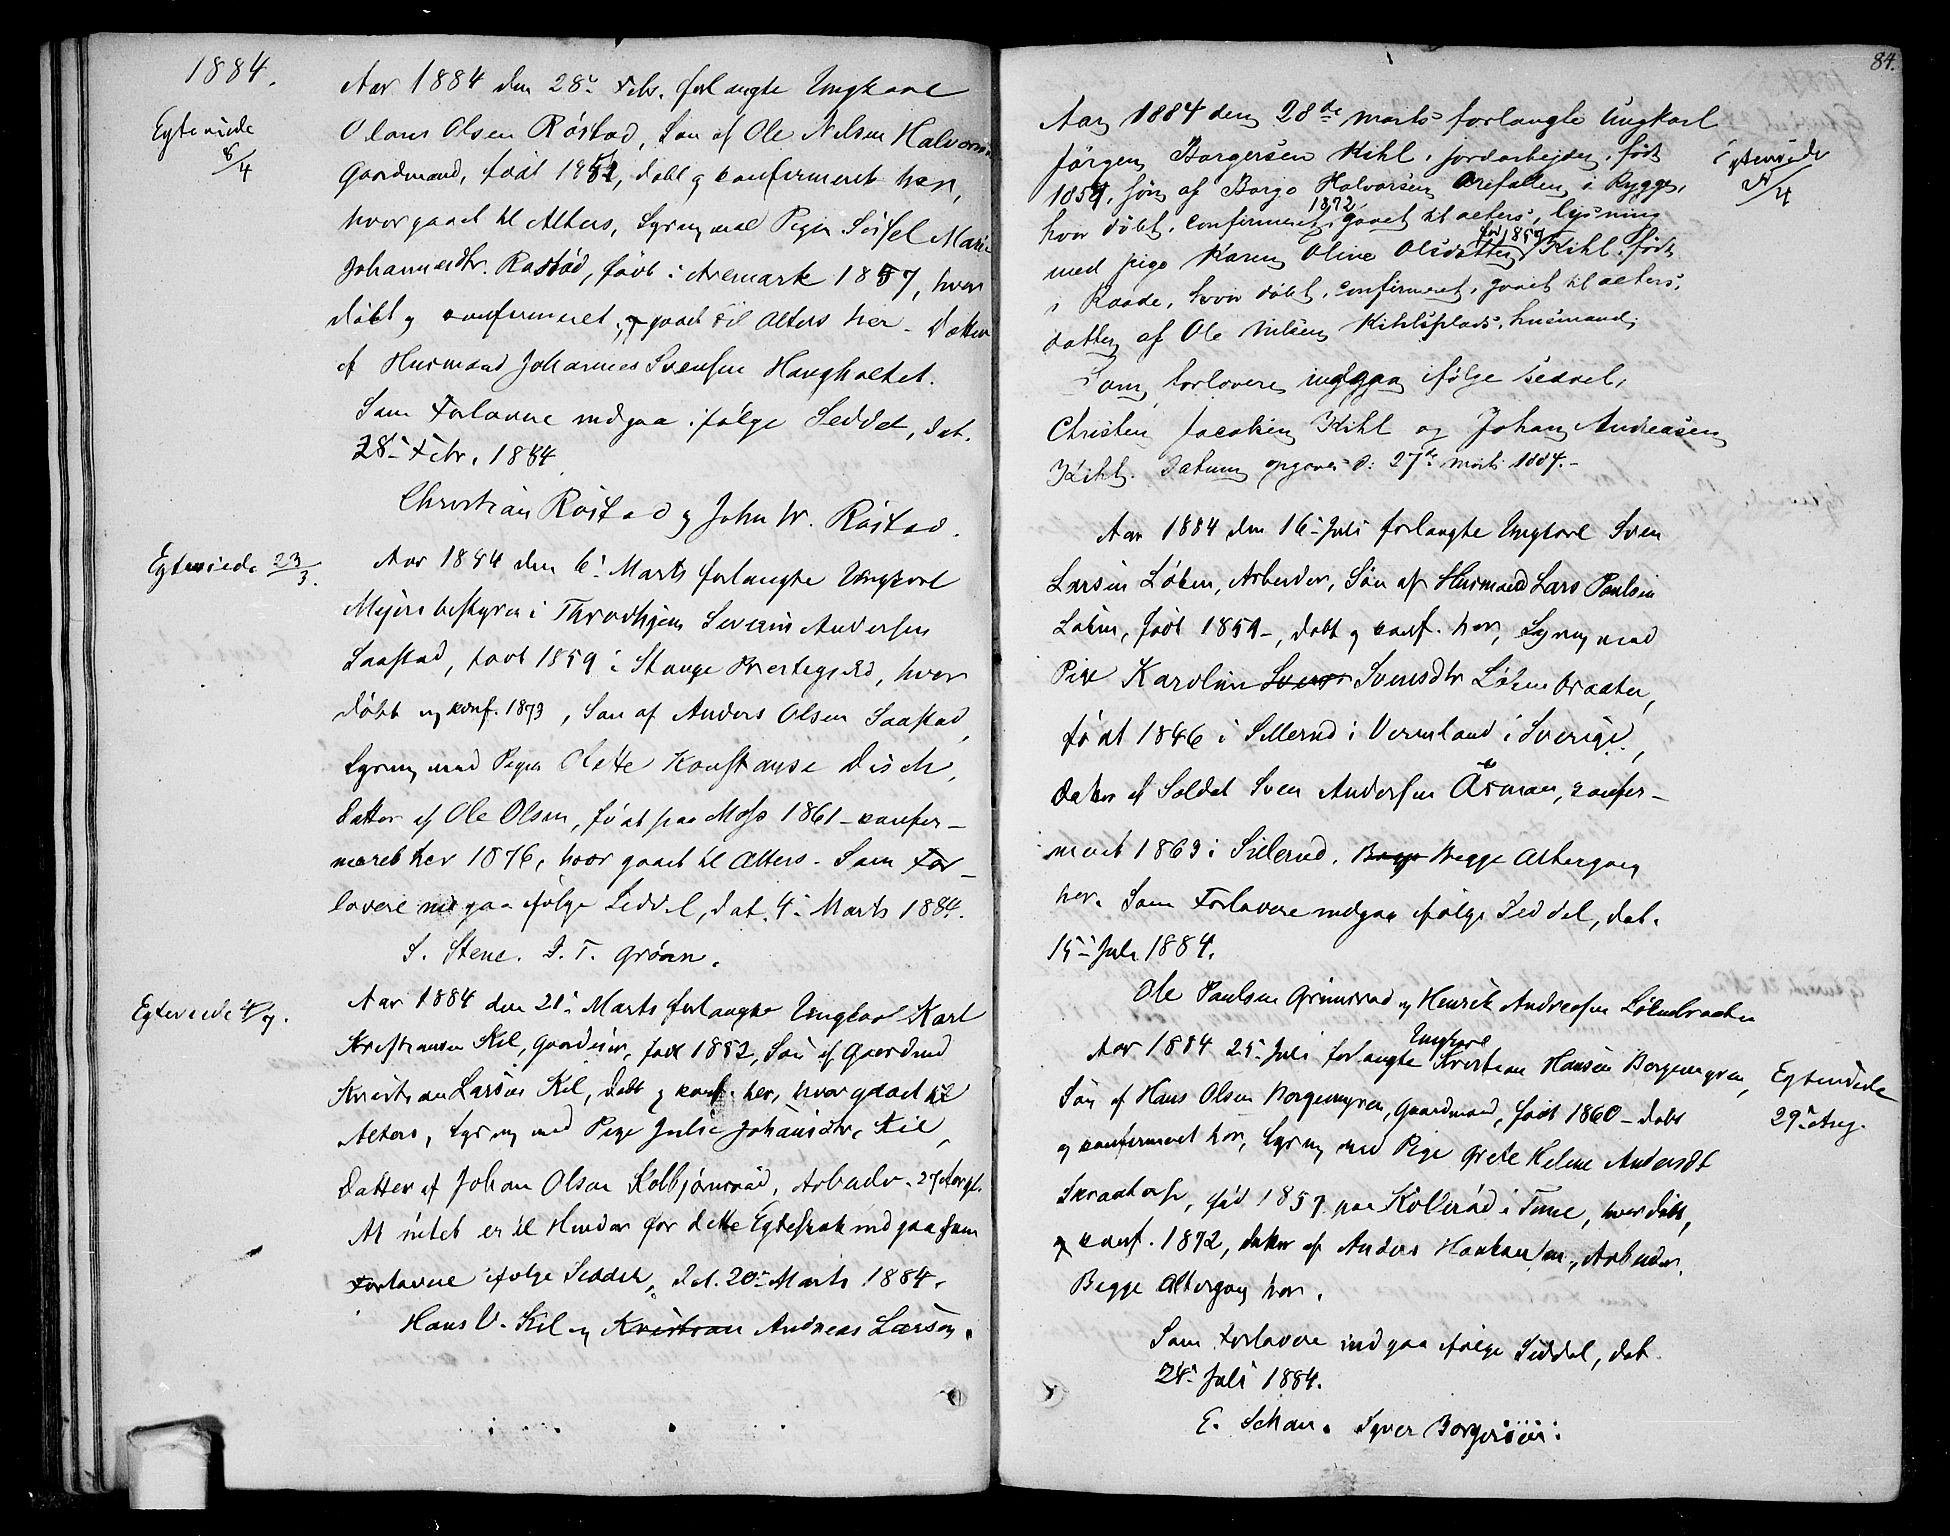 1884.
Egteviede
8/4
Aar 1884 den 28de Febr. forlangte Ungkarl
Olaus Olsen Röstad, Søn af Ole Nilsen Halvorsrød
Gaardmand, født döbt og konfirmeret her,
hvor gaaet til Alters, Lysning med Pigen Sissel Marie
Johannesdtr. Røstad, född i Aremark 1857, hvor
döbt og konfirmeret, og gaaet til Alters her - Datter
af Husmand Johannes Svensen Haugholtet.
Som Forlovere indgaa ifölge Seddel, dat.
28de Febr. 1884.
Christian Röstad og John W. Röstad.
Egteviede 23/3.
Aar 1884 den 6te Marts forlangte Ungkarl
Meieribestyrer i Throndhjem Severin Andersen
Saastad, født 1859 i Stange Prestegjeld, hvor
döbt og konf. 1873, Søn af Anders Olsen Saastad,
Lysning med Pigen Olette Konstanse Disch,
Datter af Ole Olsen, födt paa Moss 1861 - konfir-
meret her 1876, hvor gaaet til Alters. Som For-
lovere indgaa ifölge Seddel, dat. 4de Marts 1884.
S. Stene. J. T. Gröen.
Egteviede 4/7.
Aar 1884 den 21de Marts forlangte Ungkarl Karl
Kristiansen Kil, Gaardeier, født 1852, Søn af Gaardmd
Kristian Larsen Kil, döbt og konf. her, hvor gaaet til
Alters, Lysning med Pige Julie Johansdtr. Kil,
Datter af Johan Olsen Kolbjörnsrød, Arbeider. 27 Aar gl.
At intet er til Hinder for dette Egteskab indgaa som
Forlovere ifölge Seddel, dat. 20de Marts 1884.
Hans U. Kil og Kristian Andreas Larsen.
84.
Aar 1884 den 28de marts forlangte Ungkarl
Jörgen Borgersen Kihl, jordarbejder, födt
1859, sön af Borge Halvorsen Orefallen i Rygge,
1872
hvor döbt, confirmeret, gaaet til alters, lysning
fød 1859
med pige Karen Oline Olsdatter Kihl, födt
i Raade, hvor döbt, confirmeret, gaaet til alters,
datter af Ole Nilsen Kihlsplads, husmand,
Som forlovere indgaa ifölge seddel,
Christen Jacobsen Kihl og Johan Andreasen
Kihl. Datum opgaves d. 27de marts 1884.
Egteviede
24/4
Aar 1884 den 16de Juli forlangte Ungkarl Sven
Larsen Löken, Arbeider, Søn af Husmand Lars Paulsen
Løken, födt 1859, döbt og konf. her, Lysning med
Pige Karoline Svens Svensdtr Løkenbraaten,
födt 1846 i Sillerud i Vermland i Sverige,
Datter af Soldat Sven Andersen Åsman, konfir-
meret 1863 i Sillerud. Begge Begge Altergang
her. Som Forlovere indgaa ifölge Seddel, dat.
15de Juli 1884.
Ole Paulsen Grimsrød og Henrik Andreasen Løkenbraaten
Ungkarl
Aar 1884 25de Juli forlangte Kristian Hansen Borgemyren,
Søn af Hans Olsen Borgemyren, Gaardmand, født 1860 - døbt
og konfirmeret her, Lysning med Pige Grete Helene Andersdt
Skraatorp, fød 1857 paa Kolbrød i Tune, hvor døbt,
og konf. 1872, Datter af Anders Haakonsen, Arbeider.
Begge Altergang her.
Som Forlovere indgaa ifölge Seddel, dat.
24de Juli 1884.
E. Schau. Syver Borgersen.
Egteviede
29de Aug.